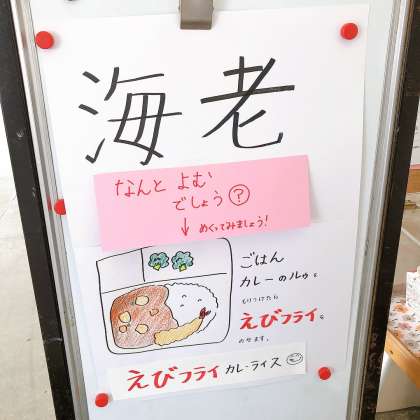 海老
なんと よむ
でしょう?
↓ めくってみましょう!
ごはん
カレーのルゥを
もりつけたら
えびフライを
のせます。
えびフライ カレーライス